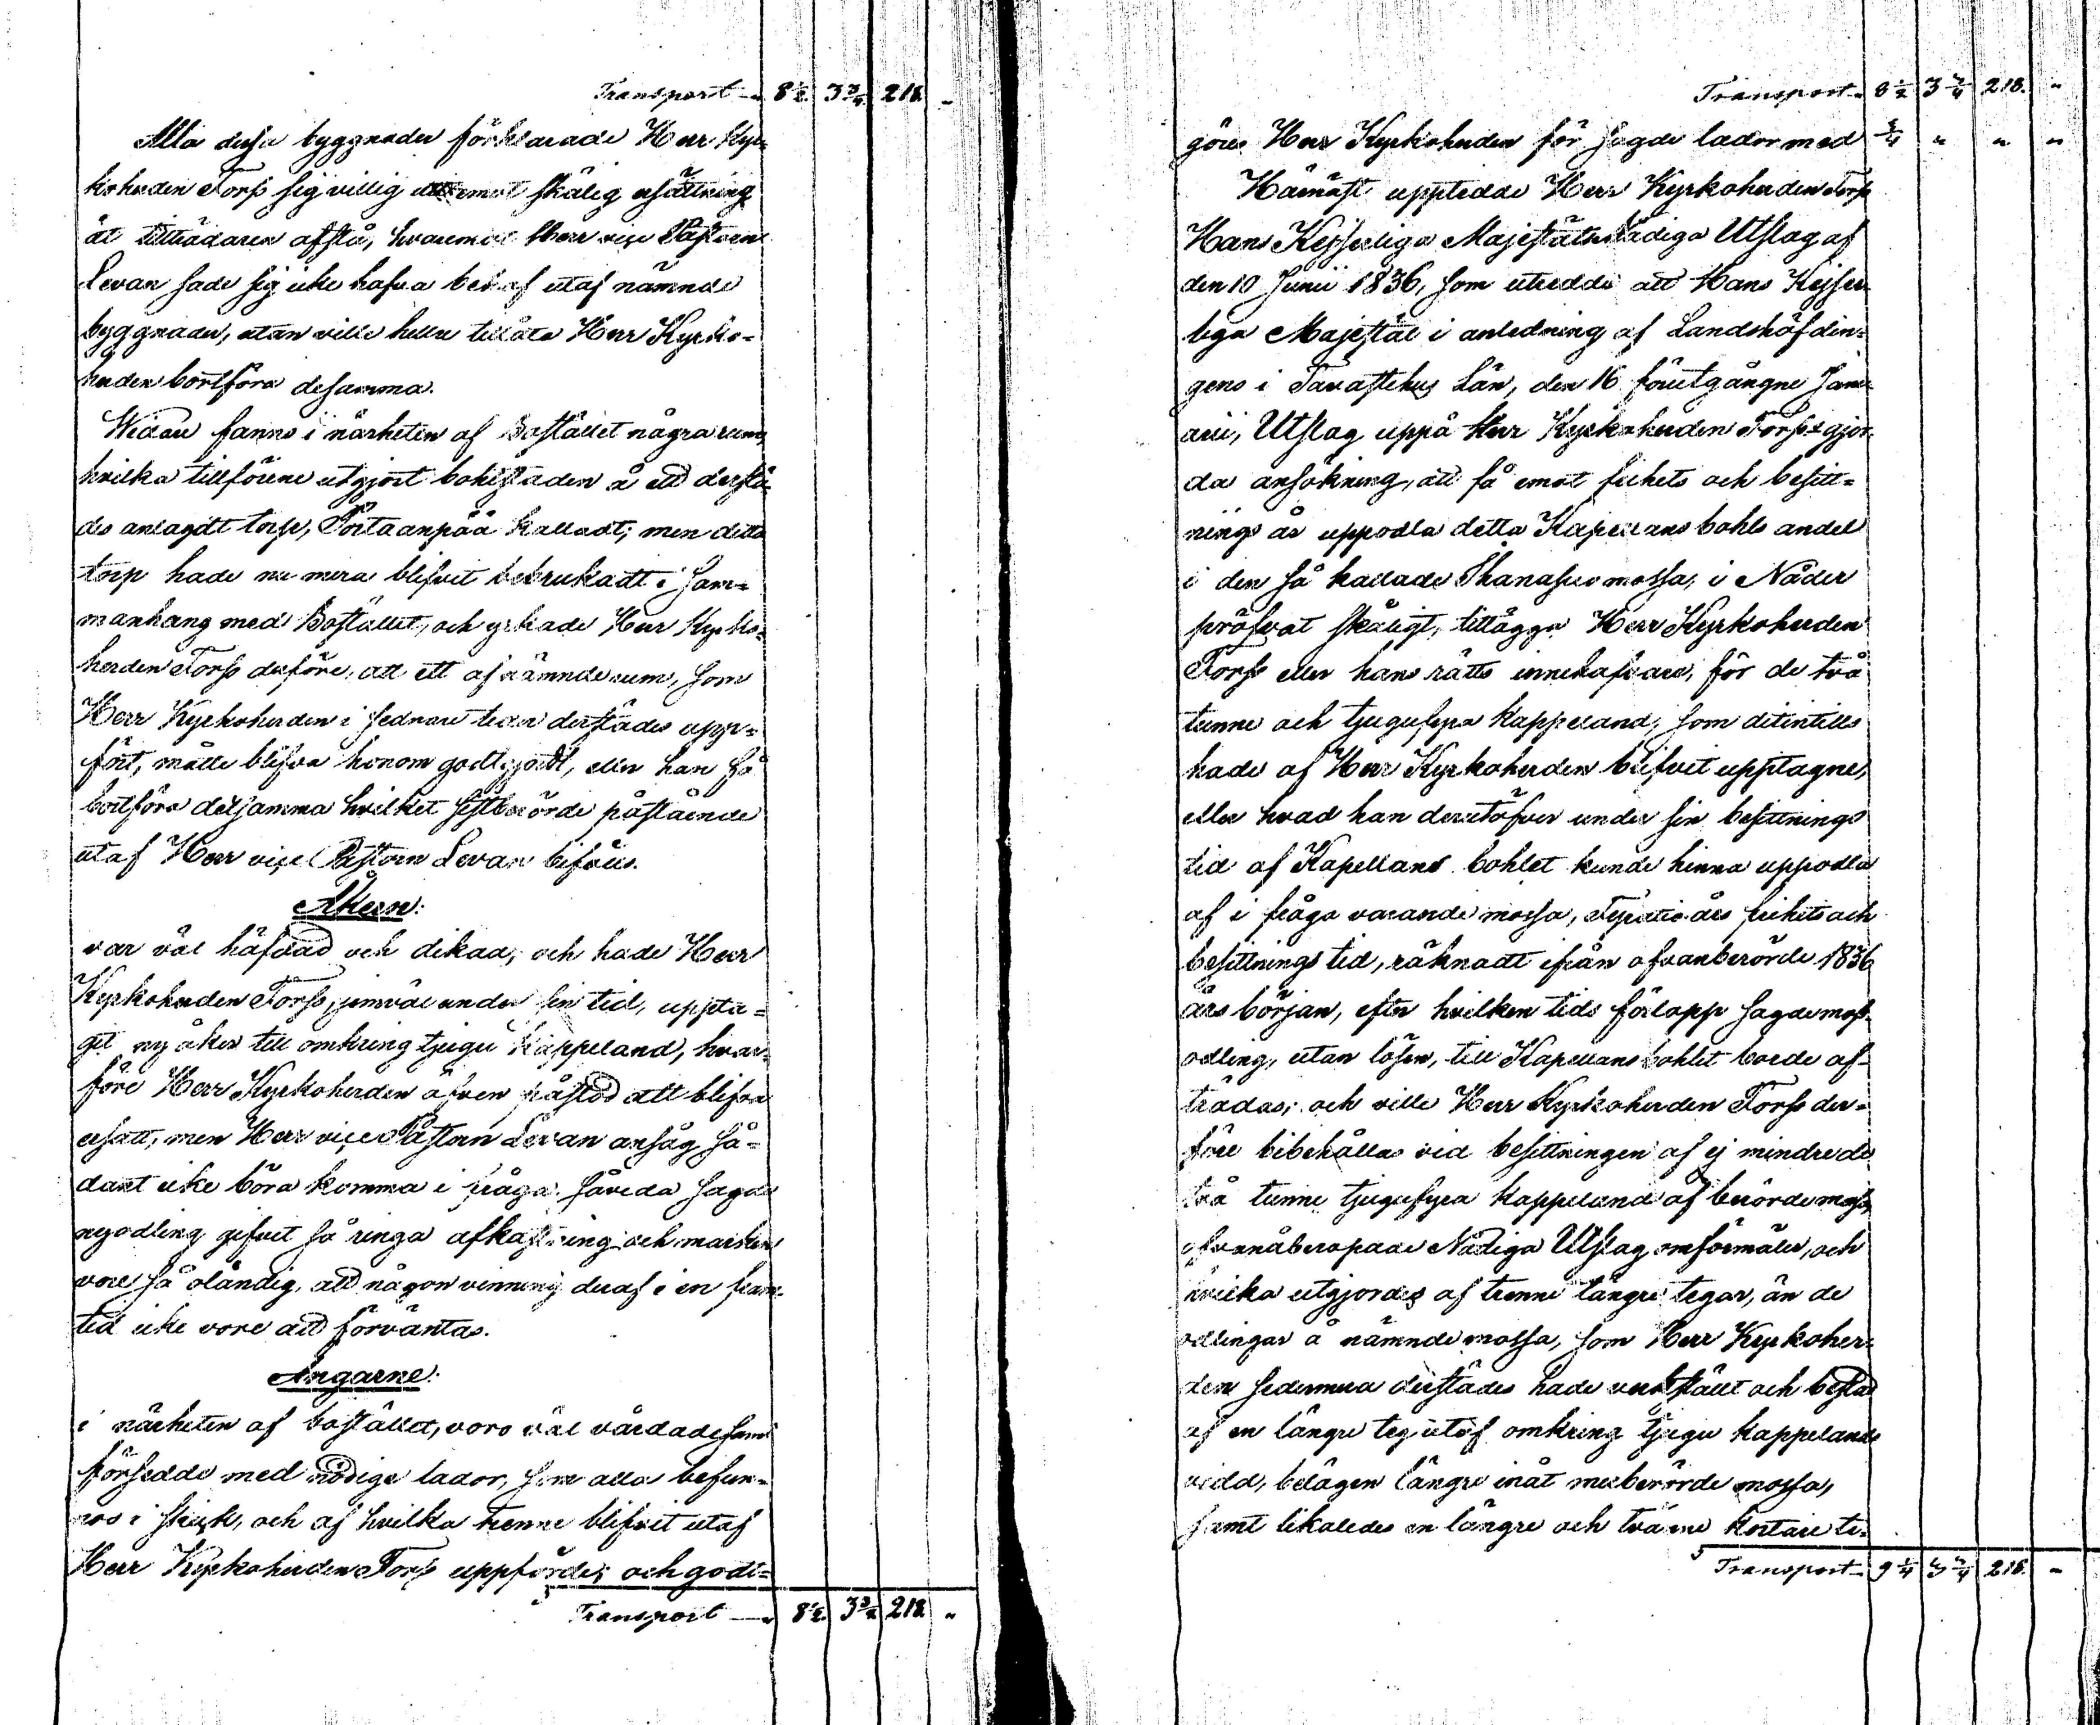 Transport — 8½. 3¾ 218. „
Alla dessa byggnader förklarade Herr Kyr-
koherden Forss sig villig emot skälig ersättning
åt tillträdaren afstå, hvaremot Herr vice Pastorn
Levan sade sig icke hafva behof utaf nämnde
byggnader, utan ville hellre tillåta Herr Kyrko-
herden bortföra desamma.
Widare fanns i närheten af Bostället några rum,
hvilka tillförene utgjort bohlstaden å ett derstä-
des anlagdt torp, Portaanpää kalladt; men detta
torp hade nu mera blifvit bebrukadt i sam-
manhang med Bostället, och yrkade Herr Kyrko-
herden Forss derföre, att ett af nämnde rum, som
Herr Kyrkoherden i sednare tider derstädes upp-
fört, måtte blifva honom godtgjordt, eller han få
bortföra detsamma hvilket sistberörde påstående
utaf Herr vice Pastorn Levan bifölls.
Åkern:
var väl häfdad och dikad, och hade Herr
Kyrkoherden Forss, jemväl under sin tid, uppta-
git ny åker till omkring tjugu kappeland, hvar-
före Herr Kyrkoherden äfven påstod att blifva
ersatt, men Herr vice Pastorn Levan ansåg så-
dant icke böra komma i fråga, såvida sagde
nyodling gifvit så ringa afkastning och marken
vore så oländig, att någon vinning deraf i en fram-
tid icke vore att förväntas.
Ängarne:
i närheten af bostället, voro väl vårdade samt
försedde med nödige lador, som alla befun-
nos i skick, och af hvilka trenne blifvit utaf
Herr Kyrkoherden Forss uppförde; och godt-
Transport — 8½. 3¾ 218. „
Transport — 8½ 3¾ 218. „
göres Herr Kyrkoherden för sagde lador med ¾ „ „ „
Härnäst uppteddе Herr Kyrkoherden Forss
Hans Kejserliga Majestäts Nådiga Utslag af
den 10 Junii 1836, som utredde att Hans Kejser-
liga Majestät i anledning af Landshöfdin-
gens i Tavastehus Län, den 16 föregångne Janu-
arii, Utslag uppå Herr Kyrkoherden Forss's gjor-
da ansökning, att få emot frihets och besitt-
nings år uppodla detta Kapellans bohls andel
i den så kallade mossa, i Nåder
pröfvat skäligt, tillägga Herr Kyrkoherden
Forss eller hans rätts innehafvare, för de två
tunne och tjugufyra kappeland, som ditintills
hade af Herr Kyrkoherden blifvit upptagne,
eller hvad han derutöfver under sin besittnings
tid af Kapellans bohlet kunde hinna uppodla
af i fråga varande mossa, Tyratio års frihets och
besittnings tid, räknadt ifrån ofvanberörde 1836
års början, efter hvilken tids förlopp sagde moss-
odling, utan lösen, till Kapellans bohlet borde af-
trädas; och ville Herr Kyrkoherden Forss der-
före bibehållas vid besittningen af ej mindre de
två tunne tjugufyra kappeland af berörde mossa,
ofvanåberopade Nådiga Utslag omförmäler, och
hvilka utgjordes af trenne längre tegar, än de
odlingar å nämnde mossa, som Herr Kyrkoher-
den sedermera derstädes hade verkställt och bestod
af en längre teg utaf omkring tjugu kappelands
vidd, belägen längre inåt merberörde mossa,
samt likaledes en längre och tvänne kortare te-
Transport — 9¼ 3¾ 218. „